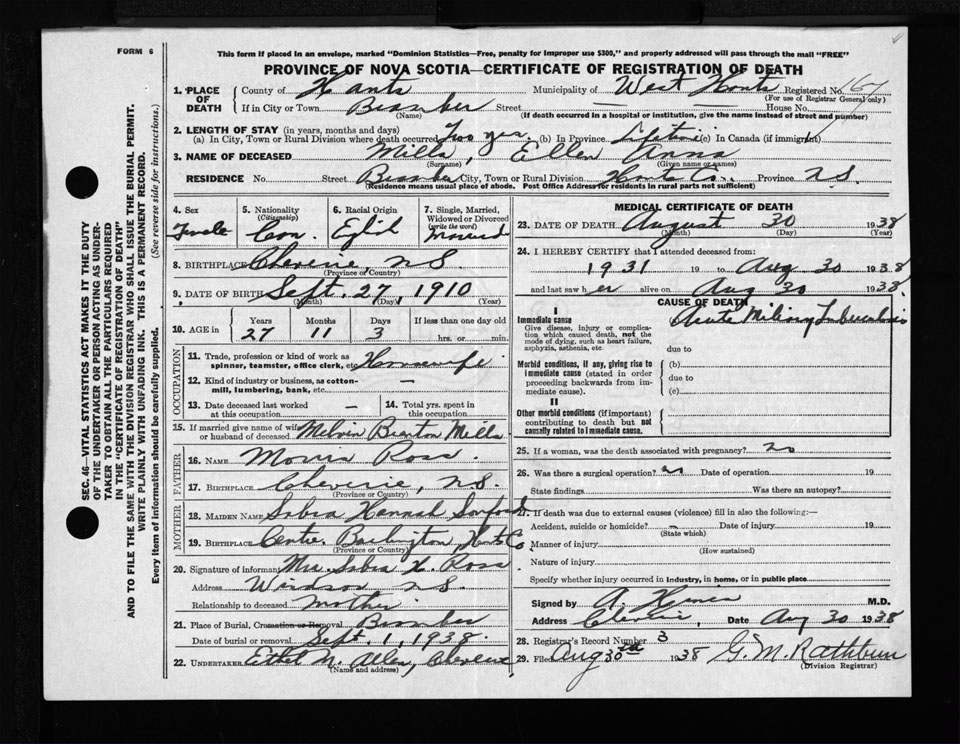 FORM 6
This form if placed in an envelope, marked "Dominion Statistics—Free, penalty for improper use $300," and properly addressed will pass through the mail "FREE"
PROVINCE OF NOVA SCOTIA—CERTIFICATE OF REGISTRATION OF DEATH
1. PLACE OF DEATH County of Hants Municipality of West Hants Registered No. 167
(For use of Registrar General only)
If in City or Town Street — House No. —
(Name) (If death occurred in a hospital or institution, give the name instead of street and number)
2. LENGTH OF STAY (in years, months and days)
(a) In City, Town or Rural Division where death occurred Two yrs (b) In Province Lifetime (c) In Canada (if immigrant)
3. NAME OF DECEASED Mills, Ellen Anna
(Surname) (Given name or names)
RESIDENCE No. Street City, Town or Rural Division Hants Co. Province N.S.
(Residence means usual place of abode. Post Office Address for residents in rural parts not sufficient)
4. Sex Female
5. Nationality (Citizenship) Can.
6. Racial Origin
7. Single, Married, Widowed or Divorced (write the word) Married
8. BIRTHPLACE Cheverie, N.S.
(Province or Country)
9. DATE OF BIRTH Sept. 27, 1910
(Month) (Day) (Year)
10. AGE in Years Months Days If less than one day old
27 11 3 hrs. or min.
OCCUPATION
11. Trade, profession or kind of work as spinner, teamster, office clerk, etc. Housewife
12. Kind of industry or business, as cotton-mill, lumbering, bank, etc. —
13. Date deceased last worked at this occupation — 14. Total yrs. spent in this occupation
15. If married give name of wife or husband of deceased Melvin Mills
FATHER
16. NAME Morris Ross
17. BIRTHPLACE Cheverie, N.S.
(Province or Country)
MOTHER
18. MAIDEN NAME Sabra Hannah Sanford
19. BIRTHPLACE Centre Burlington, Hants Co.
(Province or Country)
20. Signature of informant Mrs. Sabra H. Ross
Address Windsor N.S.
Relationship to deceased mother
21. Place of Burial, Cremation or Removal
Date of burial or removal Sept. 1, 1938.
22. UNDERTAKER Ethel M. Allen, Cheverie
(Name and address)
MEDICAL CERTIFICATE OF DEATH
23. DATE OF DEATH August 30 1938
(Month) (Day) (Year)
24. I HEREBY CERTIFY that I attended deceased from:
1931 19 to Aug 30 1938
and last saw her alive on Aug 30 1938.
CAUSE OF DEATH
I
Immediate cause Acute Miliary Tuberculosis
Give disease, injury or complication which caused death, not the mode of dying, such as heart failure, asphyxia, asthenia, etc.
due to
Morbid conditions, if any, giving rise to immediate cause (stated in order proceeding backwards from immediate cause).
(b)
due to
(c)
II
Other morbid conditions (if important) contributing to death but not causally related to immediate cause.
25. If a woman, was the death associated with pregnancy? no
26. Was there a surgical operation? no Date of operation 19
State findings Was there an autopsy?
27. If death was due to external causes (violence) fill in also the following:—
Accident, suicide or homicide? — Date of injury 19
(State which)
Manner of injury
(How sustained)
Nature of injury
Specify whether injury occurred in industry, in home, or in public place
Signed by M.D.
Address Cheverie, Date Aug 30 1938
28. Registrar's Record Number 3
29. Filed Aug 30th 1938 G. M. Rathbun
(Division Registrar)
SEC. 46—VITAL STATISTICS ACT MAKES IT THE DUTY
OF THE UNDERTAKER OR PERSON ACTING AS UNDER-
TAKER TO OBTAIN ALL THE PARTICULARS REQUIRED
IN THE "CERTIFICATE OF REGISTRATION OF DEATH"
AND TO FILE THE SAME WITH THE DIVISION REGISTRAR WHO SHALL ISSUE THE BURIAL PERMIT.
WRITE PLAINLY WITH UNFADING INK. THIS IS A PERMANENT RECORD.
Every item of information should be carefully supplied. (See reverse side for instructions.)